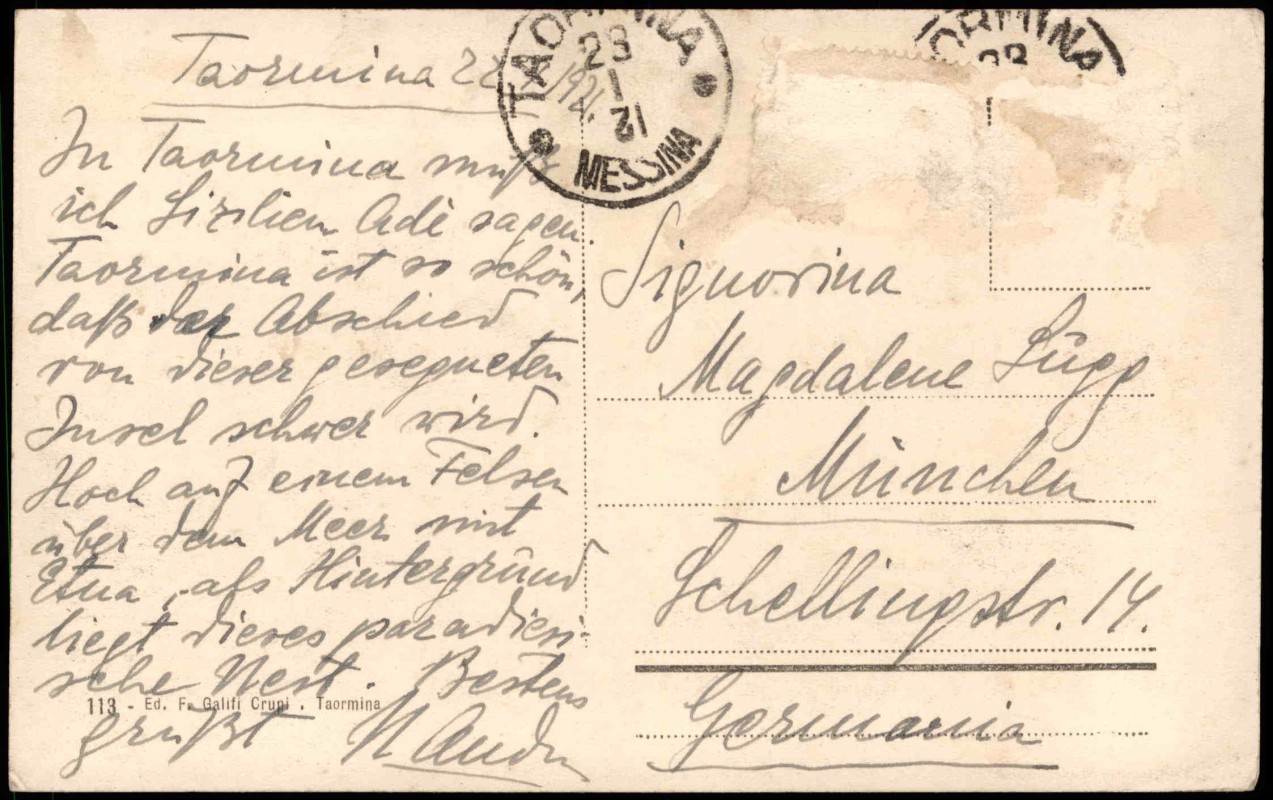 Taormina 22 1921.
In Taormina muß
ich Sizilien Adè sagen.
Taormina ist so schön,
daß der Abschied
von dieser gesegneten
Insel schwer wird.
Hoch auf einem Felsen
über dem Meer mit
Etna als Hintergrund
liegt dieses paradiesi-
sche Nest. Bestens
grüßt
113 - Ed. F. Galifi Crupi . Taormina
TAORMINA
23
1
21
MESSINA
ORMINA
Signorina
Magdalene Lügg
München
Schellingstr. 14.
Germania